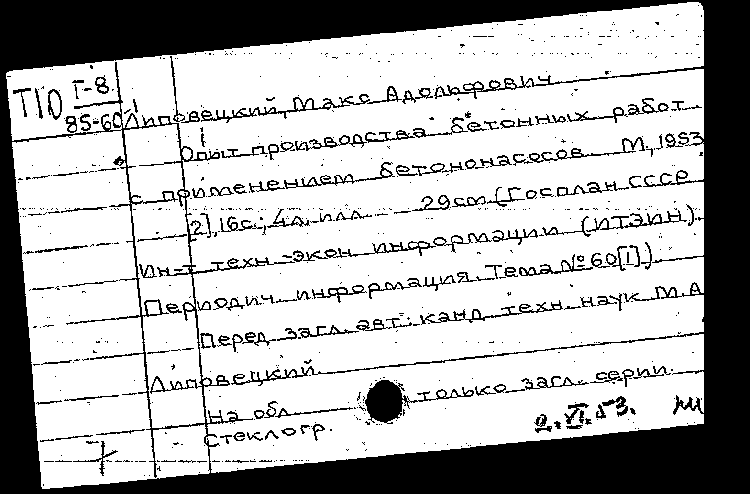 Т10 I-8
85-60
Липовецкий, Макс Адольфович
Опыт производства бетонных работ
с применением бетононасосов М., 1953
[2], 16 с.; 4 л. илл. 29 см (Госплан СССР
Ин-т техн.-экон. информации (ИТЭИН).
Периодич. информация. Тема № 60[I])
Перед загл. авт.: канд. техн. наук М.А
Липовецкий
На обл. только загл. серии.
Стеклогр.
2.VI.53.